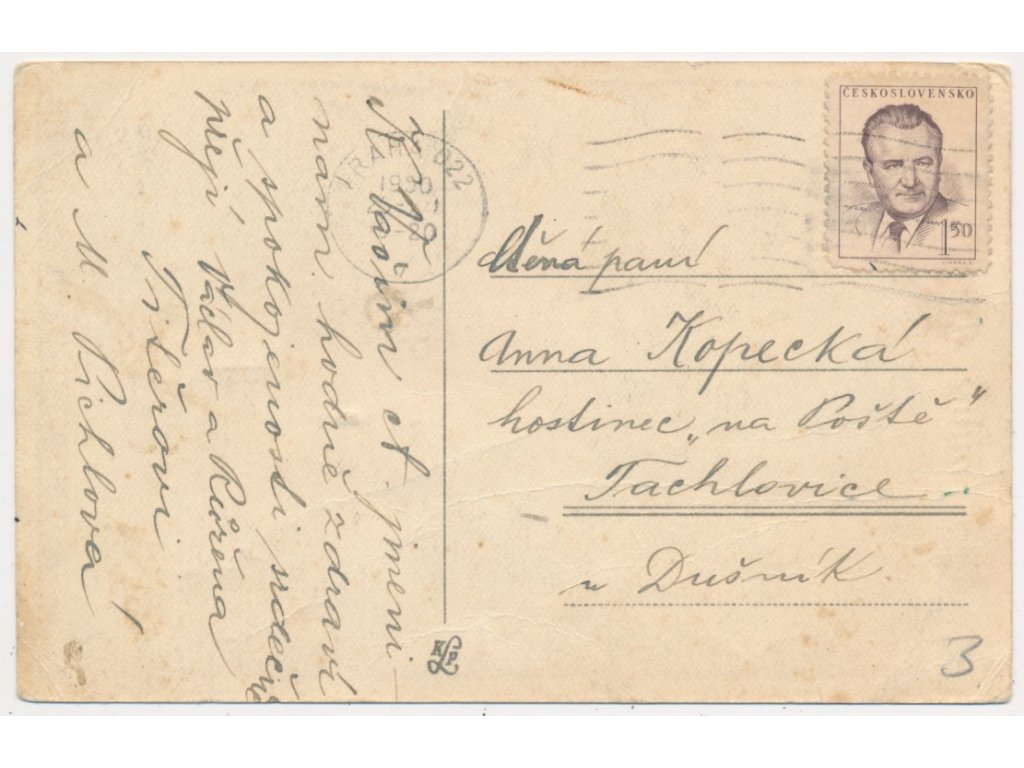 K Vašim ct. jmeni-
nam hodně zdraví
a spokojenosti srdečně
přejí Václav a Růžena
a M. Pichlova
PRAHA 022
1950
ČESKOSLOVENSKO
1 50
ctěná paní
Anna Kopecká
hostinec „na Poště"
Tachlovice
u Dušník.
K P
3